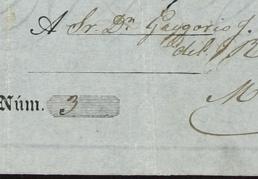 A Sr. Dn. Gregorio J.
del R
Núm. 3
M